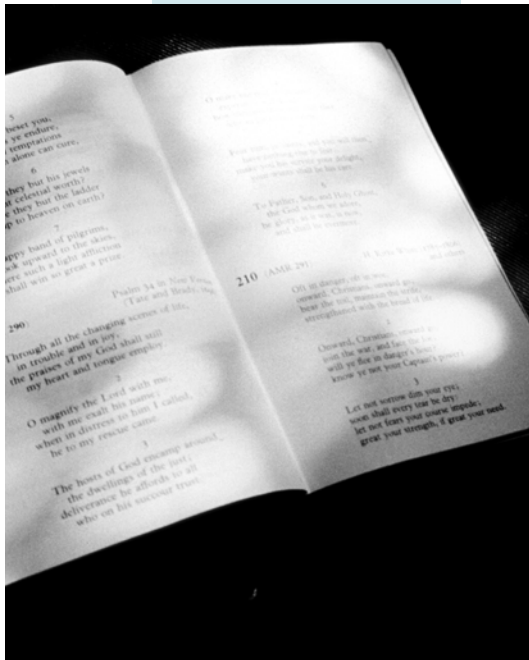 5
beset you,
ye endure,
temptations
alone can cure,
6
they but his jewels
celestial worth?
they but the ladder
to heaven on earth)
7
band of pilgrims,
upward to the skies,
such a light affliction
shall win so great a prize
Psalm 34 in New
(Tate and Brady,
290)
Through all the changing scenes of life,
in trouble and in joy,
the praises of my God shall still
my heart and tongue employ.
2
O magnify the Lord with me,
with me exalt his name;
when in distress to him I called,
he to my rescue came.
3
The hosts of God encamp around
the dwellings of the just;
deliverance he affords to all
who on his succour trust.
and you will then
your delight,
6
To Father, Son, and Holy Ghost,
the God whom we adore,
be glory, as it was, is now,
and shall be evermore.
210 (AMR 291)
and others
Oft in danger, oft in woe,
onward, Christians, onward go,
bear the toil, maintain the strife,
strengthened with the bread of life.
2
Onward, Christians, onward go,
join the war, and face the foe;
will ye flee in danger's hour?
know ye not your Captain's power?
3
Let not sorrow dim your eye;
soon shall every tear be dry:
let not fears your course impede;
great your strength, if great your need.